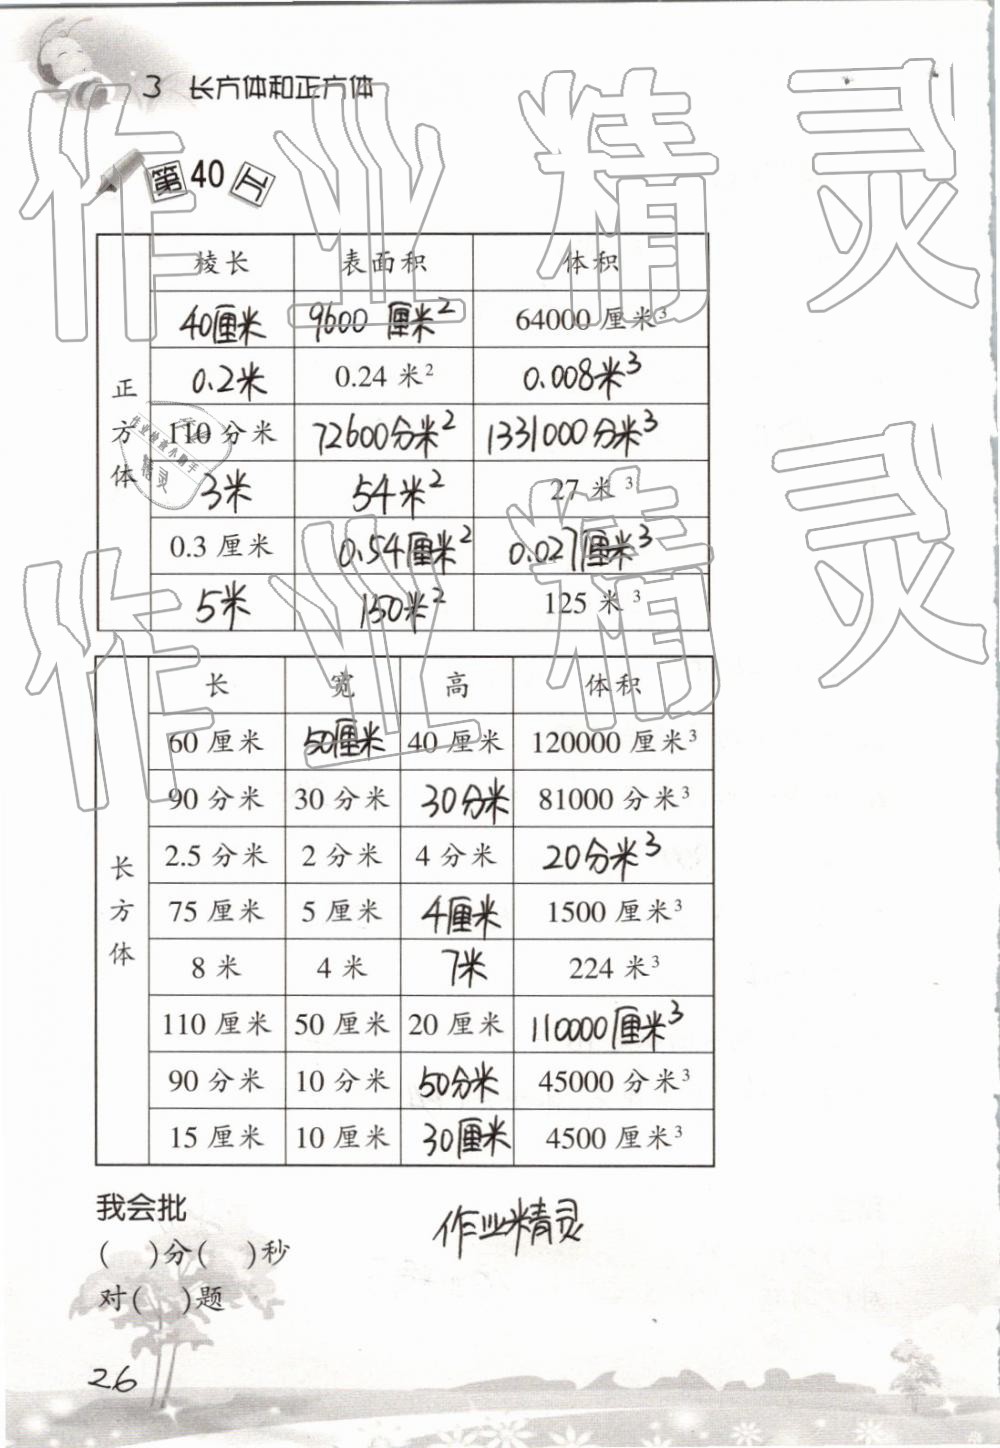 3 长方体和正方体
第40天
正方体
棱长 表面积 体积
40厘米 9600厘米² 64000厘米³
0.2米 0.24米² 0.008米³
110分米 72600分米² 1331000分米³
3米 54米² 27米³
0.3厘米 0.54厘米² 0.027厘米³
5米 150米² 125米³
长方体
长 宽 高 体积
60厘米 50厘米 40厘米 120000厘米³
90分米 30分米 30分米 81000分米³
2.5分米 2分米 4分米 20分米³
75厘米 5厘米 4厘米 1500厘米³
8米 4米 7米 224米³
110厘米 50厘米 20厘米 110000厘米³
90分米 10分米 50分米 45000分米³
15厘米 10厘米 30厘米 4500厘米³
我会批
( )分( )秒
对( )题
作业精灵
26
作业精灵
作业精灵